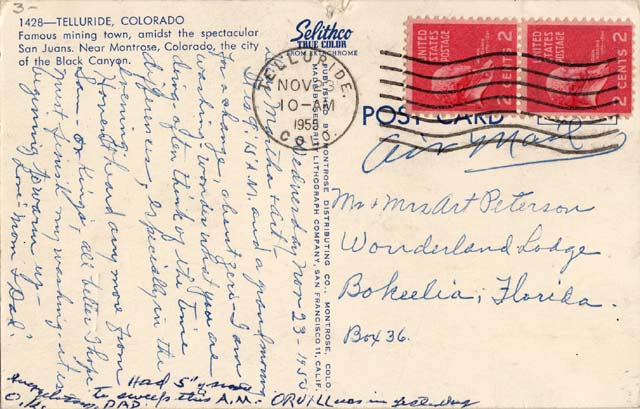 3-
1428—TELLURIDE, COLORADO
Famous mining town, amidst the spectacular
San Juans. Near Montrose, Colorado, the city
of the Black Canyon.
Selithco
TRUE COLOR
FROM EKTACHROME
PUBLISHED BY MONTROSE DISTRIBUTING CO., MONTROSE, COLO.
MADE BY SELITHCO LITHOGRAPH COMPANY, SAN FRANCISCO 11, CALIF.
TELLURIDE.
NOV 23
10-AM
1955
COLO.
UNITED STATES POSTAGE
2 CENTS 2
UNITED STATES POSTAGE
2 CENTS 2
POST CARD
Air Mail
Mr. & Mrs Art Peterson
Wonderland Lodge.
Bokeelia, Florida.
Box 36.
Wednesday Nov 23-1955
Martha & Art!
A.M. and a grand morning
for a change, about zero - I am
washing, wonder what you are
doing, often think of the time
difference, especially in the
evening.
Haven't heard any more from
Sam - or Kings, all better I hope
Must finish my washing - it is
beginning to warm up -
Love "Mom & Dad."
Had 5" of snow
to sweep this A.M. ORVILL was in yesterday
everything O.K. DAD.